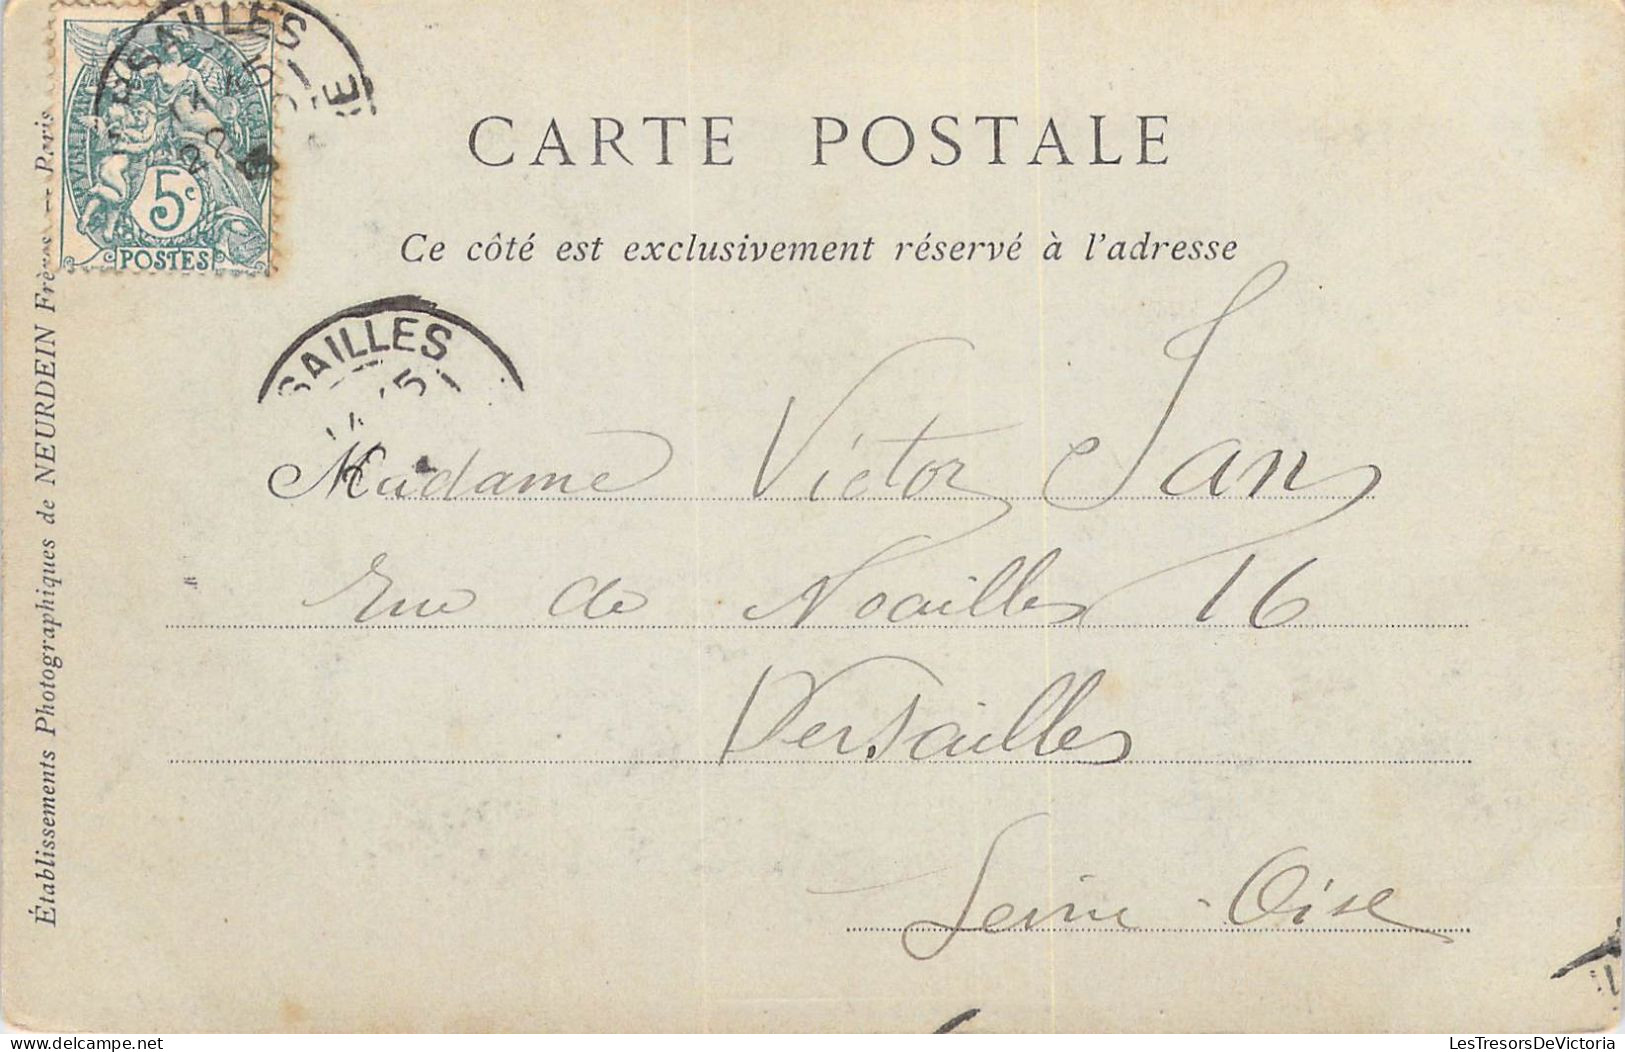 CARTE POSTALE
Ce côté est exclusivement réservé à l'adresse
5c
POSTES
SAILLES
SAILLES
Madame Victor Jan
Rue de Noailles 16
Versailles
Seine-Oise
Établissements Photographiques de NEURDEIN Frères — Paris
LesTresorsDeVictoria.com